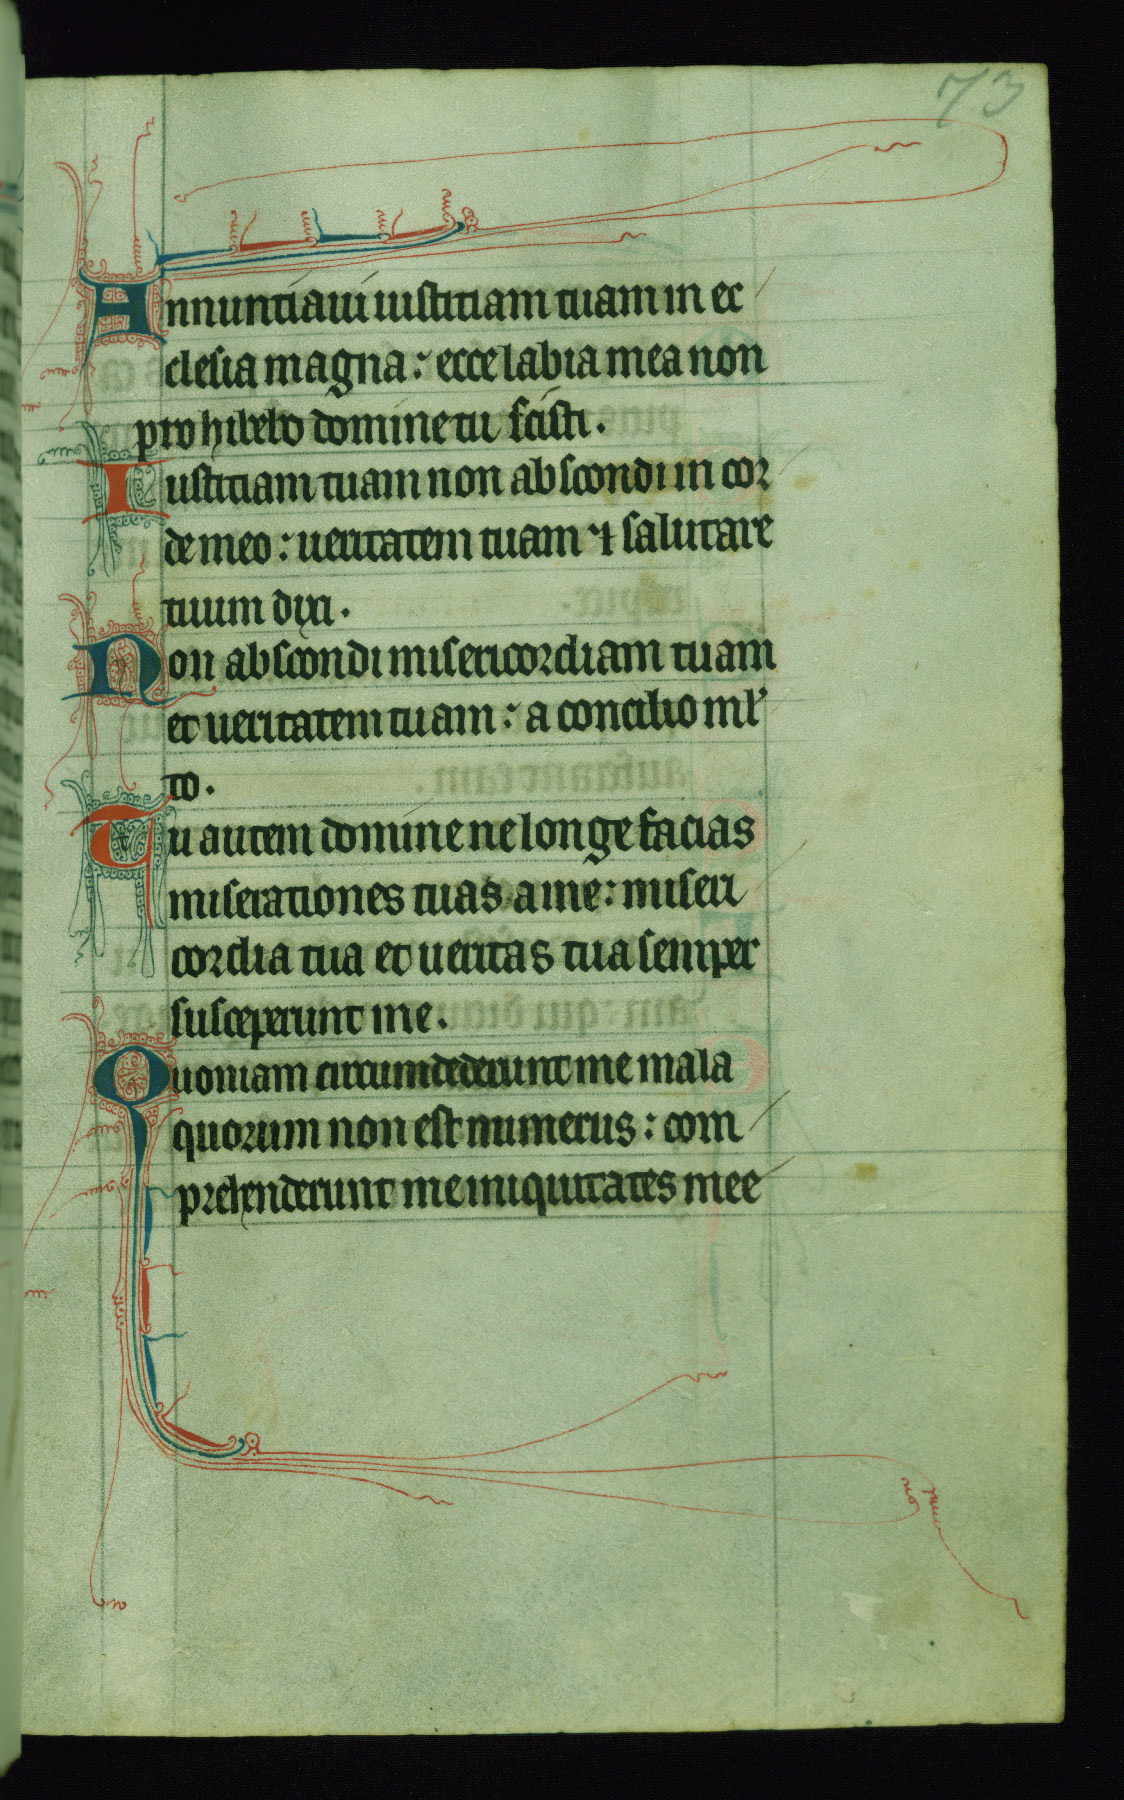 73
Annuntiaui iustitiam tuam in ec
clesia magna: ecce labia mea non
prohibebo domine tu scisti.
Iustitiam tuam non abscondi in cor
de meo: ueritatem tuam ⁊ salutare
tuum dixi.
Non abscondi misericordiam tuam
et ueritatem tuam: a concilio ml'
to.
Tu autem domine ne longe facias
miserationes tuas a me: miseri
cordia tua et ueritas tua semper
susceperunt me.
Quoniam circumdederunt me mala
quorum non est numerus: com
prehenderunt me iniquitates mee